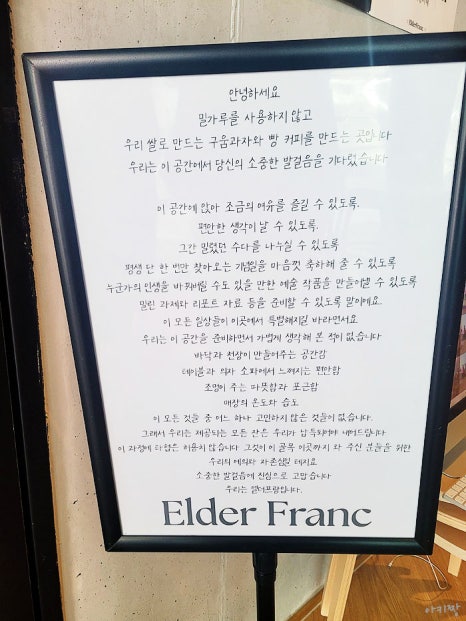 안녕하세요
밀가루를 사용하지 않고
우리 쌀로 만드는 구움과자와 빵 커피를 만드는 곳입니다
우리는 이 공간에서 당신의 소중한 발걸음을 기다렸습니다
이 공간에 앉아 조금의 여유를 즐길 수 있도록.
편안한 생각이 날 수 있도록.
그간 밀렸던 수다를 나누실 수 있도록
평생 단 한 번만 찾아오는 기념일을 마음껏 축하해 줄 수 있도록
누군가의 인생을 바꿔버릴 수도 있을 만한 예술 작품을 만들어낼 수 있도록
밀린 과제와 리포트 자료 등을 준비할 수 있도록 말이에요.
이 모든 일상들이 이곳에서 특별해지길 바라면서요
우리는 이 공간을 준비하면서 가볍게 생각해 본 적이 없습니다
바닥과 천장이 만들어주는 공간감
테이블과 의자 소파에서 느껴지는 편안함
조명이 주는 따뜻함과 포근함
매장의 온도와 습도
이 모든 것들 중 어느 하나 고민하지 않은 것들이 없습니다.
그래서 우리는 제공되는 모든 잔은 우리가 납득되어야 내어드립니다
이 과정에 타협은 허용치 않습니다 그것이 이 골목 이곳까지 와 주신 분들을 위한
우리의 예의와 자존심일 테지요
소중한 발걸음에 진심으로 고맙습니다
우리는 엘더프랑입니다.
Elder Franc
아키짱